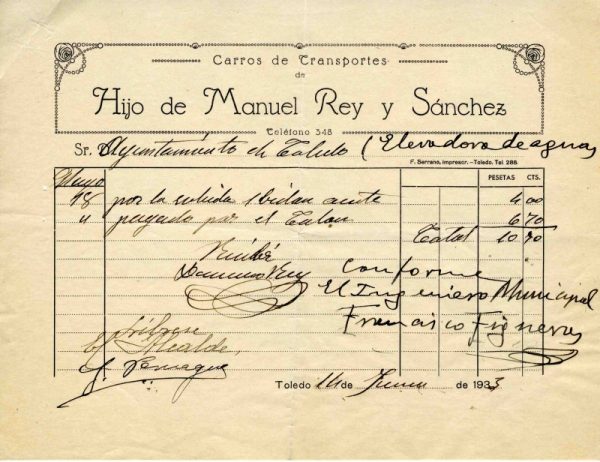 Carros de Transportes
de
Hijo de Manuel Rey y Sánchez
Teléfono 348
Sr. D. Ayuntamiento de Toledo (Elevadora de aguas
F. Serrano, impresor.-Toledo. Tel 288
PESETAS CTS.
Mayo
18 por la subida 1 bidan aceite 4 00
" pagado por el Talon 6 70
Total 10 70
Recibí
Rey
Conforme
El Ingeniero Municipal
Francisco Figueras
Líbrese
El Alcalde,
Toledo 14 de Junio de 1933